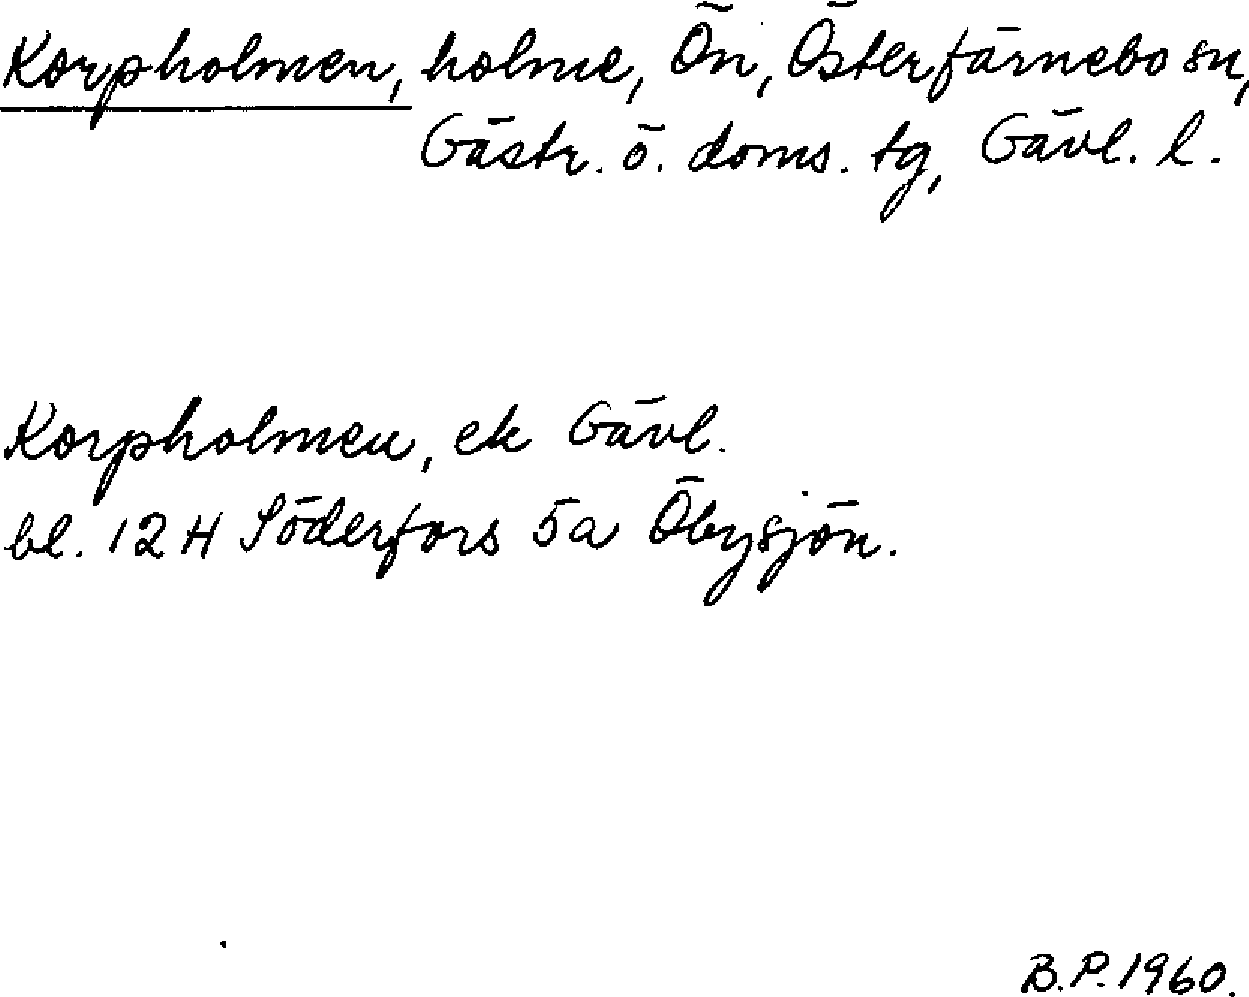 Korpholmen, holme, Ön, Österfärnebo sn,
Gästr. ö. doms. tg, Gävl. l.
Korpholmen, ek Gävl.
bl. 12 H Söderfors 5a Öbysjön.
B.P. 1960.